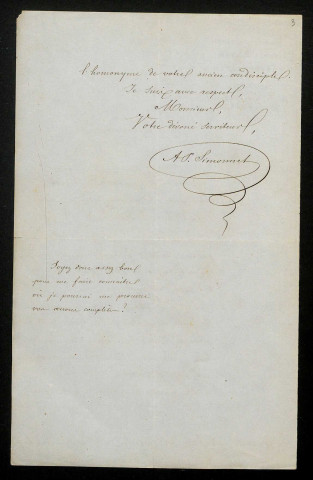 3
l'homonyme de votre ancien condisciple.
Je suis avec respect,
Monsieur,
Votre dévoué serviteur,
A. P. Simonnet
Soyez donc assez bon
pour me faire connaître
où je pourrai me procurer
vos œuvres complètes?